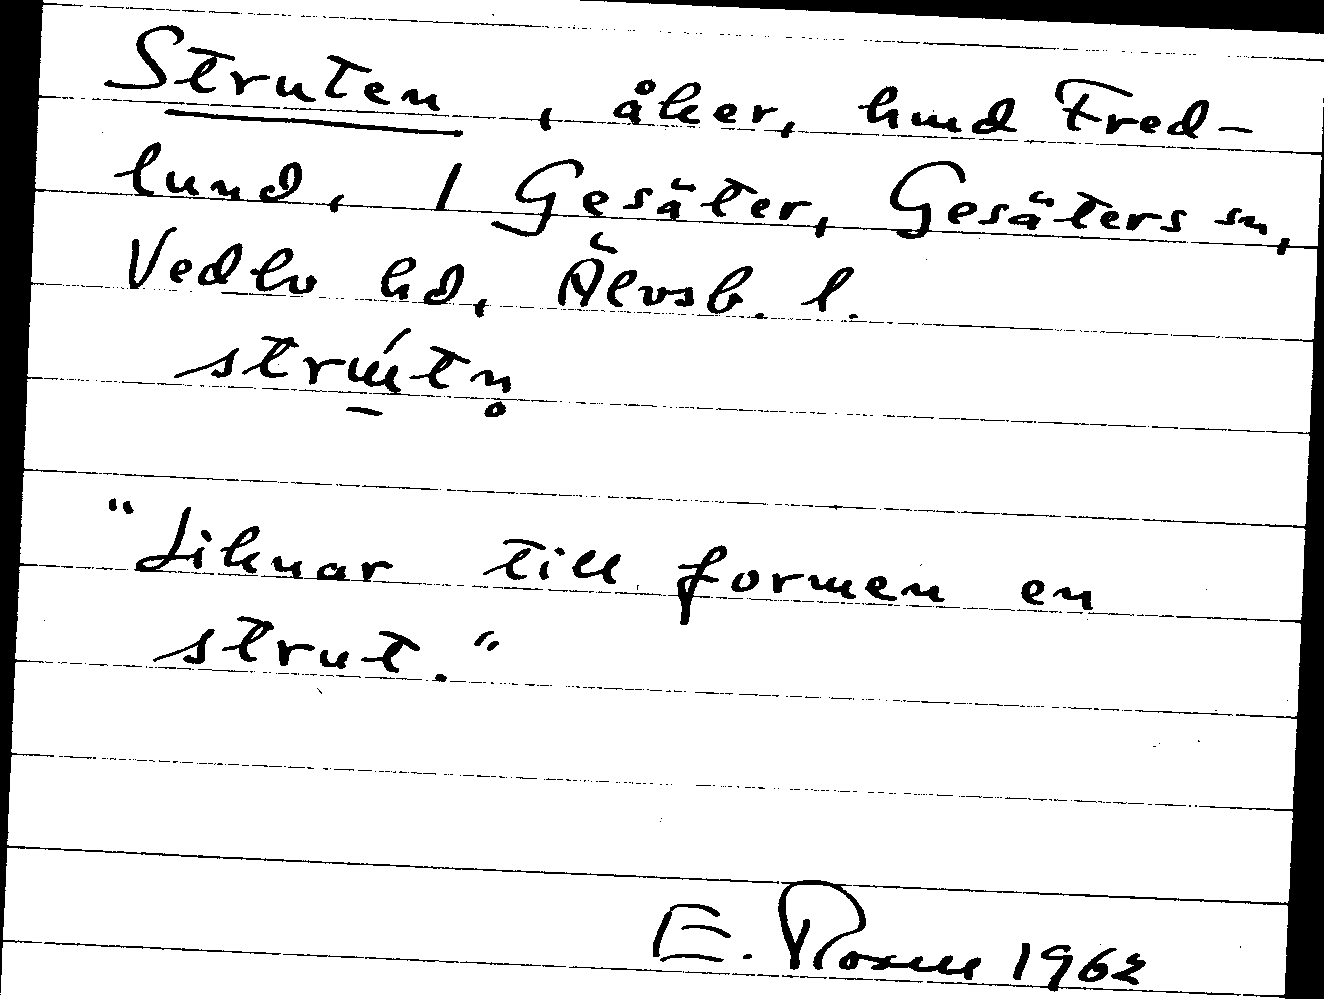 Struten, åker, hmd Fred-
lund, 1 Gesäter, Gesäters sn,
Vedbo hd, Älvsb. l.
"Liknar till formen en
strut."
E. Rosell 1962